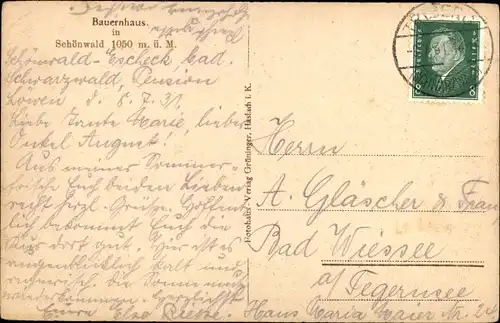 Bauernhaus.
in
Schönwald 1050 m. ü. M.
Schönwald-Escheck, bad.
Schwarzwald, Pension
Löwen d. 8. 7. 31.
Liebe Tante Marie, lieber
Onkel August!
Aus meiner Sommer-
frische Euch beiden Lieben
recht herzl. Grüße. Hoffent-
lich bekommt Euch die
Kur dort gut. Hier ist es
augenblicklich kalt und
regnerisch. Die Sonne muß
wiederkommen. Herzlichst
Eure Else
Fotohalit-Verlag Grüninger, Haslach i. K.
8 8
Herrn
A. Gläscher & Frau
Bad Wiessee
a/ Tegernsee
Haus Maria Maier Nr. 24